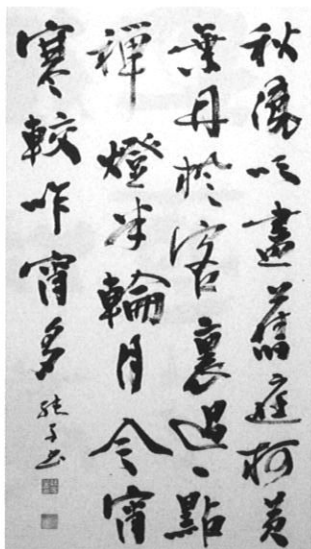 秋風吹盡舊庭柯黃
葉丹楓客裏過一點
禪燈半輪月今宵
寒較昨宵多